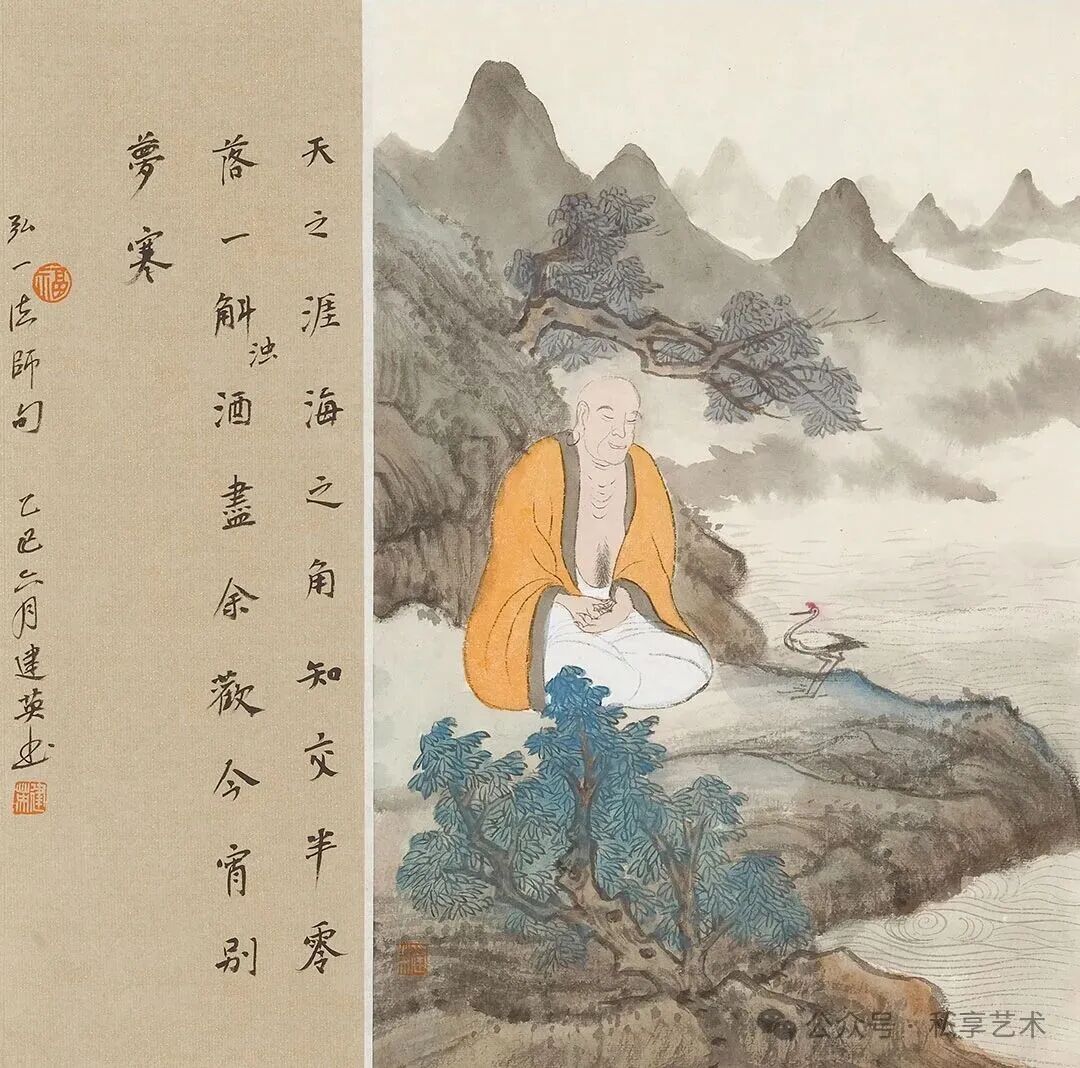 天之涯海之角知交半零
落一斛浊酒盡余歡今宵别
夢寒
弘一法師句 乙巳六月建英书
福
建英
公众号·私享艺术